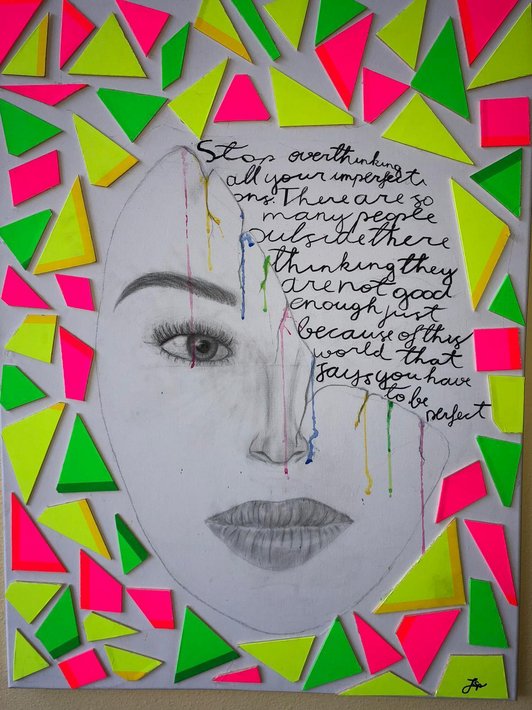 Stop overthinking
all your imperfecti
ons. There are so
many people
outside there
thinking they
are not good
enough just
because of this
world that
says you have
to be
perfect